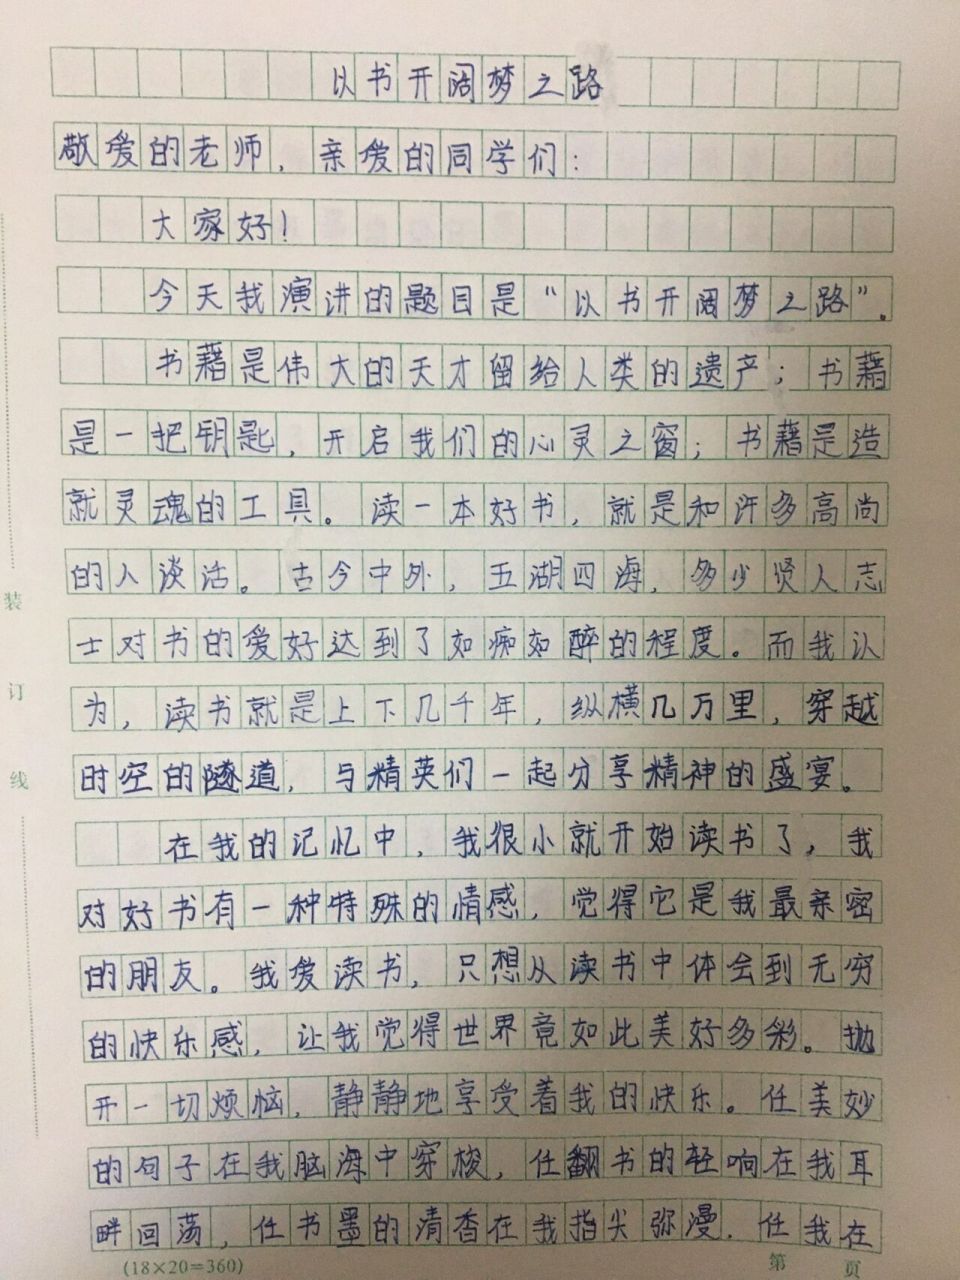 以书开阔梦之路
敬爱的老师，亲爱的同学们：
大家好！
今天我演讲的题目是“以书开阔梦之路”。
书籍是伟大的天才留给人类的遗产；书籍
是一把钥匙，开启我们的心灵之窗；书籍是造
就灵魂的工具。读一本好书，就是和许多高尚
的人谈话。古今中外，五湖四海，多少贤人志
士对书的爱好达到了如痴如醉的程度。而我认
为，读书就是上下几千年，纵横几万里，穿越
时空的隧道，与精英们一起分享精神的盛宴。
在我的记忆中，我很小就开始读书了，我
对好书有一种特殊的情感，觉得它是我最亲密
的朋友。我爱读书，只想从读书中体会到无穷
的快乐感，让我觉得世界竟如此美好多彩。抛
开一切烦恼，静静地享受着我的快乐。任美妙
的句子在我脑海中穿梭，任翻书的轻响在我耳
畔回荡，任书墨的清香在我指尖弥漫．任我在
装
订
线
(18×20=360)
第 页